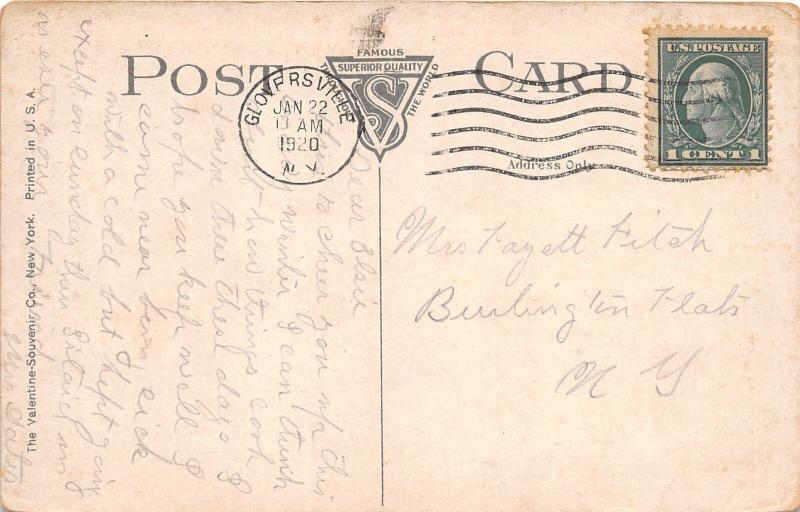 POST CARD
FAMOUS
SUPERIOR QUALITY
THE WORLD
VS
GLOVERSVILLE
JAN 22
11 AM
1920
N.Y.
U.S. POSTAGE
1 CENT 1
Address Only
Mrs Fayett Fitch
Burlington Flats
N Y
Dear Elsie
this to cheer you up this
winter I can think
just how things look
down there these days I
hope you keep well I
came near been sick
with a cold but kept going
except on Sunday then I staid in
as ever your
The Valentine-Souvenir Co., New York. Printed in U. S. A.